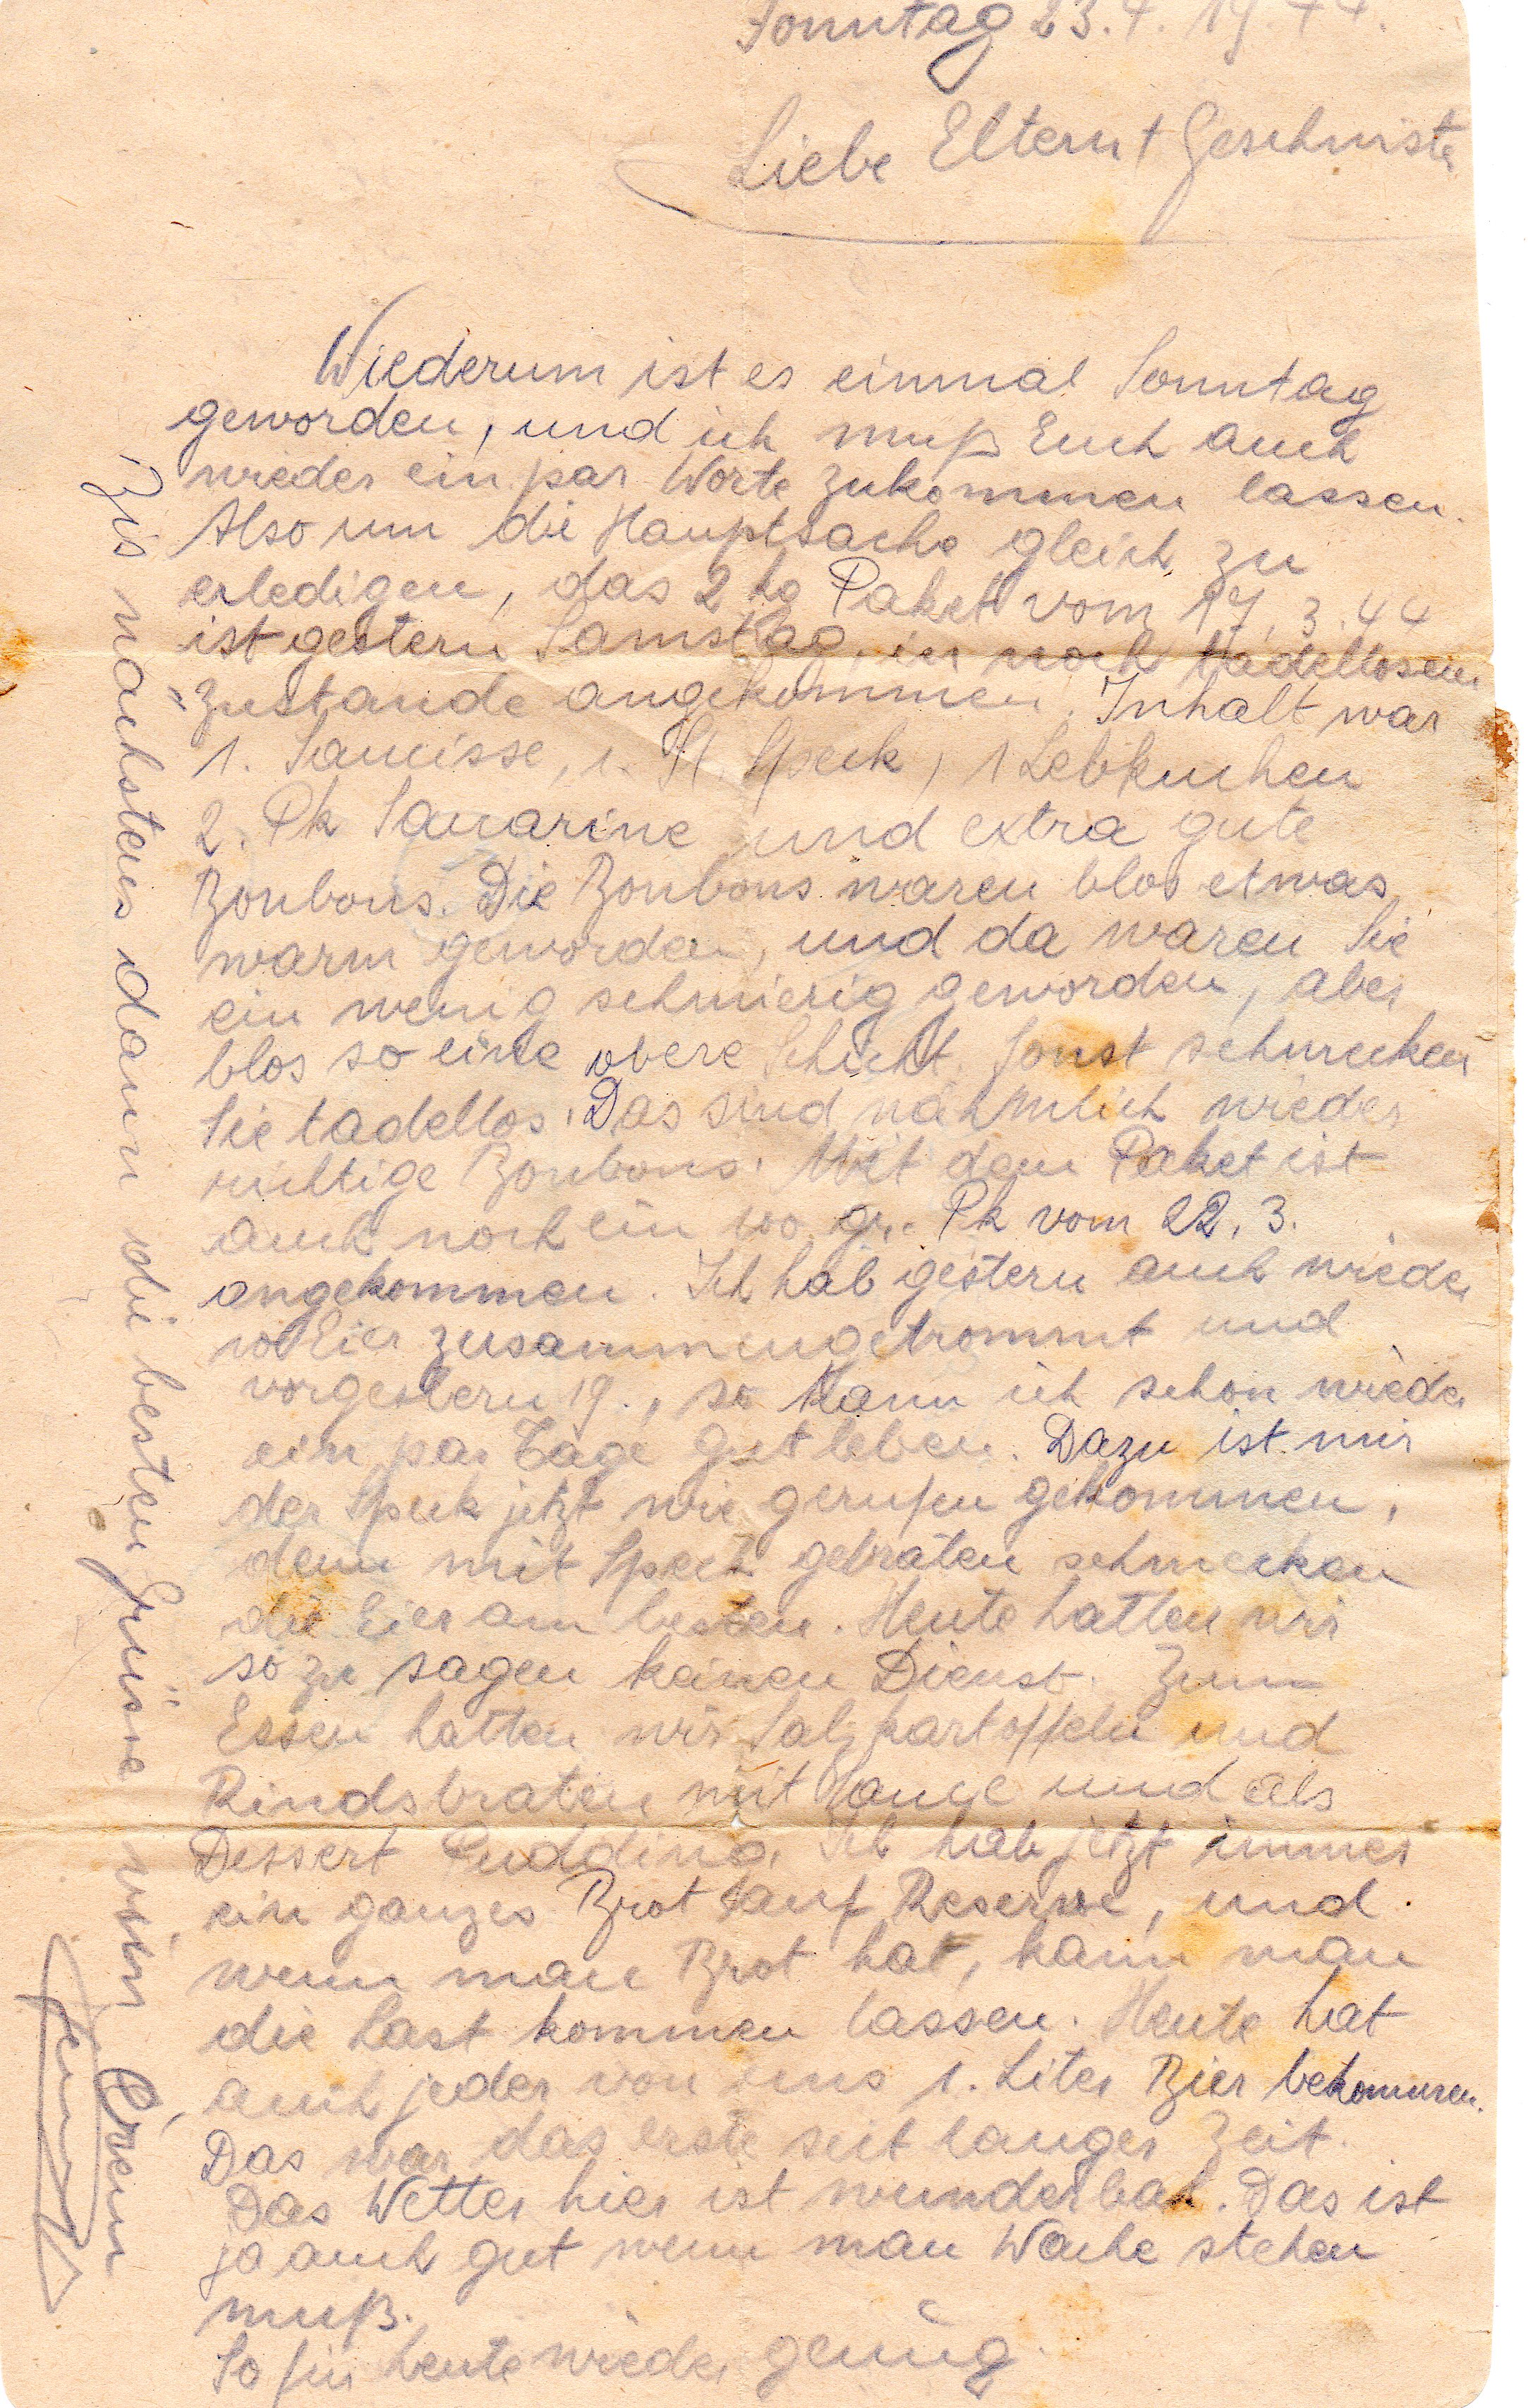 Sonntag 23.4.1944.
Liebe Eltern + Geschwister
Wiederum ist es einmal Sonntag
geworden, und ich muß Euch auch
wieder ein par Worte zukommen lassen.
Also um die Hauptsache gleich zu
erledigen, das 2 kg Paket vom 17.3.44
ist gestern Samstag, in noch tadellosem
Zustande angekommen. Inhalt war
1. Saucisse, 1. St. Speck, 1 Lebkuchen
2. Pk und extra gute
Bonbons. Die Bonbons waren blos etwas
warm geworden, und da waren Sie
ein wenig schmierig geworden, aber
blos so eine obere Schicht. Sonst schmecken
Sie tadellos. Das sind nähmlich wieder
richtige Bonbons. Mit dem Paket ist
auch noch ein 100 gr. Pk vom 22.3.
angekommen. Ich hab gestern auch wieder
10 Eier zusammengetrommt und
vorgestern 19., so kann ich schon wieder
ein par Tage gut leben. Dazu ist mir
der Speck jetzt wie gerufen gekommen,
denn mit Speck gebraten schmecken
die Eier am besten. Heute hatten wir
so zu sagen keinen Dienst. Zum
Essen hatten wir Salzkartoffeln und
Rindsbraten mit Sauce und als
Dessert Pudding. Ich hab jetzt immer
ein ganzes Brot auf Reserve, und
wenn man Brot hat, kann man
die Last kommen lassen. Heute hat
auch jeder von uns 1. Liter Bier bekommen.
Das war das erste seit langer Zeit.
Das Wetter hier ist wunderbar. Das ist
ja auch gut wenn man Wache stehen
muß.
So für heute wieder genug.
Bis nächstens dann die besten Grüsse von
Eurem